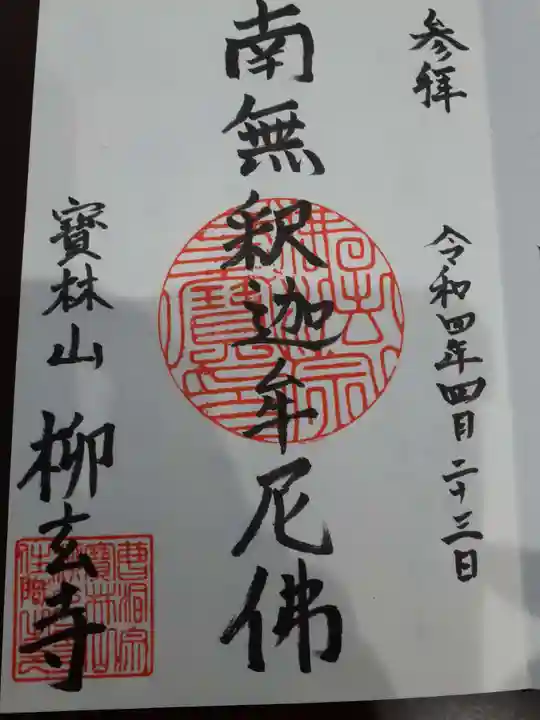 参拝
令和四年四月二十三日
南無釈迦牟尼佛
寳林山 柳玄寺